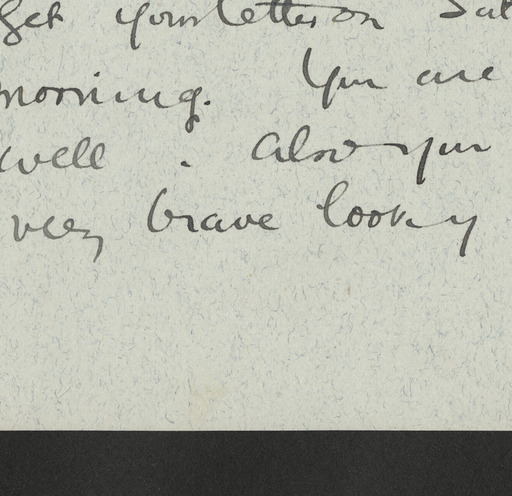 get your letter on Sat
morning. You are
well . Also your
very brave looking